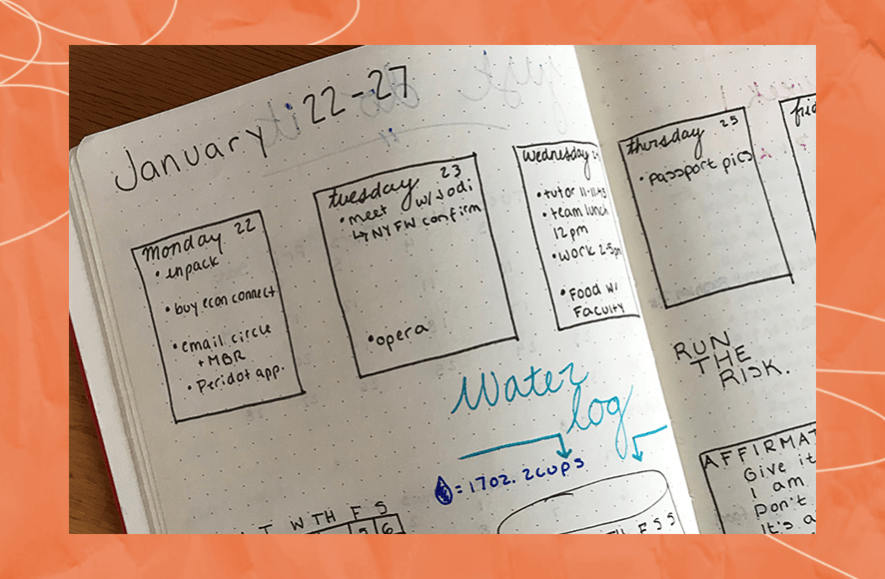 January 22-27
monday 22
• unpack
• buy econ connect
• email circle
+ MBR
• Peridot app.
tuesday 23
• meet w/ Jodi
↳ NYFW confirm
• opera
wednesday
• tutor 11-11:45
• team lunch
12pm
• work 2-5pm
• Food w/
Faculty
thursday 25
• passport pics
frid
RUN
THE
RISK.
Water
log
= 17oz. 2cups
T W TH F S
5 6
TH F S S
AFFIRMAT
Give it
I am
Don't
It's a